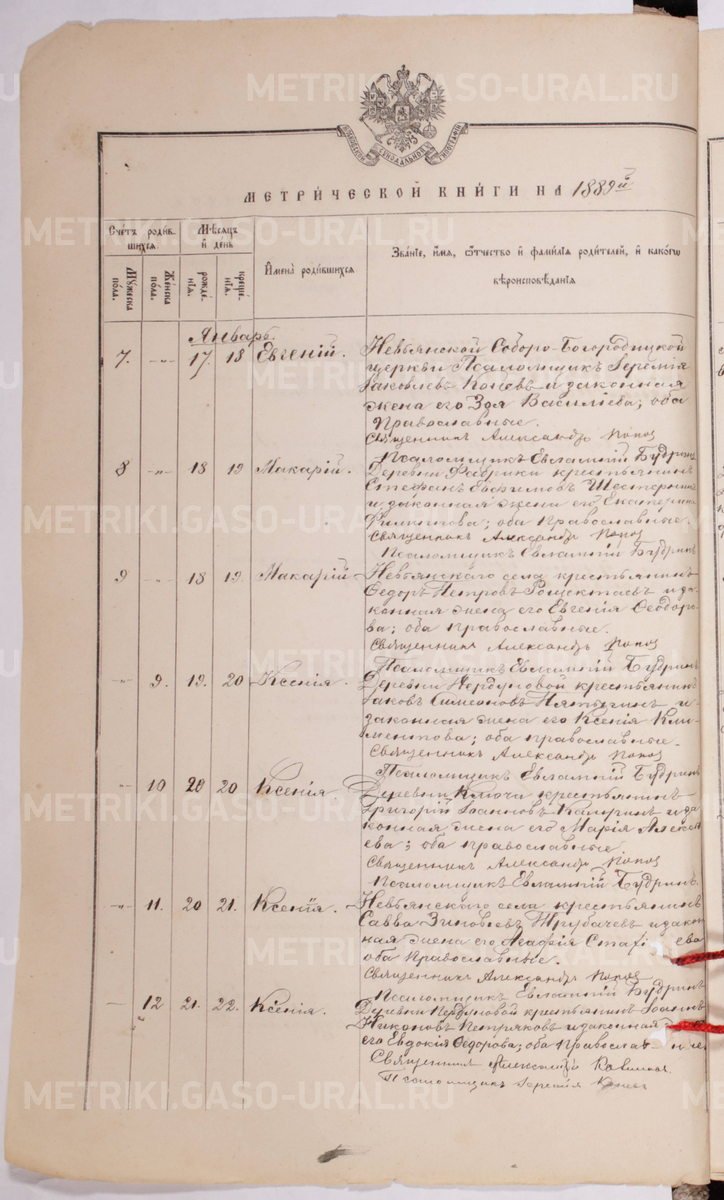 МЕТРИЧЕСКОЙ КНИГИ НА 1889й
Счетъ родив-
шихся.
Мѣсяцъ
и день
Мужеска пола.
Женска пола.
рожде-
нія.
креще-
нія.
Имена родившихся
Званіе, имя, отчество и фамилія родителей, и какого
вѣроисповѣданія
Январь.
7. -"- 17. 18 Евгеній. Невьянской Соборо-Богородицкой
церкви Псаломщикъ Іеремія
Іаковлевъ и законная
жена его Васильева; оба
Православные.
Священникъ Александръ Попов
Псаломщикъ Евлампій Будринъ
8 -"- 18 19 Макарій. Деревни Фабрики крестьянинъ
Стефанъ Евфимовъ
и законная жена его Екатерина
Филиппова; оба Православные.
Священникъ Александръ Попов
Псаломщикъ Евлампій Будринъ
9 -"- 18 19. Макарій Невьянскаго села крестьянинъ
Ѳедоръ Петровъ и за-
конная жена его Евгенія Ѳеодоро-
ва; оба православные.
Священникъ Александръ Попов
Псаломщикъ Евлампій Будринъ
-"- 9. 19. 20 Ксенія. Деревни крестьянинъ
Іаковъ Симеоновъ и
законная жена его Ксенія Кли-
ментова; оба православные.
Священникъ Александръ Попов
Псаломщикъ Евлампій Будринъ
-"- 10 20 20 Ксенія. Деревни Ключа крестьянинъ
Григорій Іоанновъ и за-
конная жена его Марія Алексе-
ева; оба православные
Священникъ Александръ Попов
Псаломщикъ Евлампій Будринъ.
-"- 11. 20 21. Ксенія. Невьянскаго села крестьянинъ
Савва Зиновьевъ Трубачевъ и закон-
ная жена его Агафія ева
оба Православные.
Священникъ Александръ Попов
Псаломщикъ Евлампій Будринъ
12 21. 22. Ксенія. Деревни крестьянинъ Іоаннъ
Никоновъ и законная
его Евдокія Ѳедорова; оба
Священник
Псаломщикъ Іеремія
METRIKI.GASO-URAL.RU